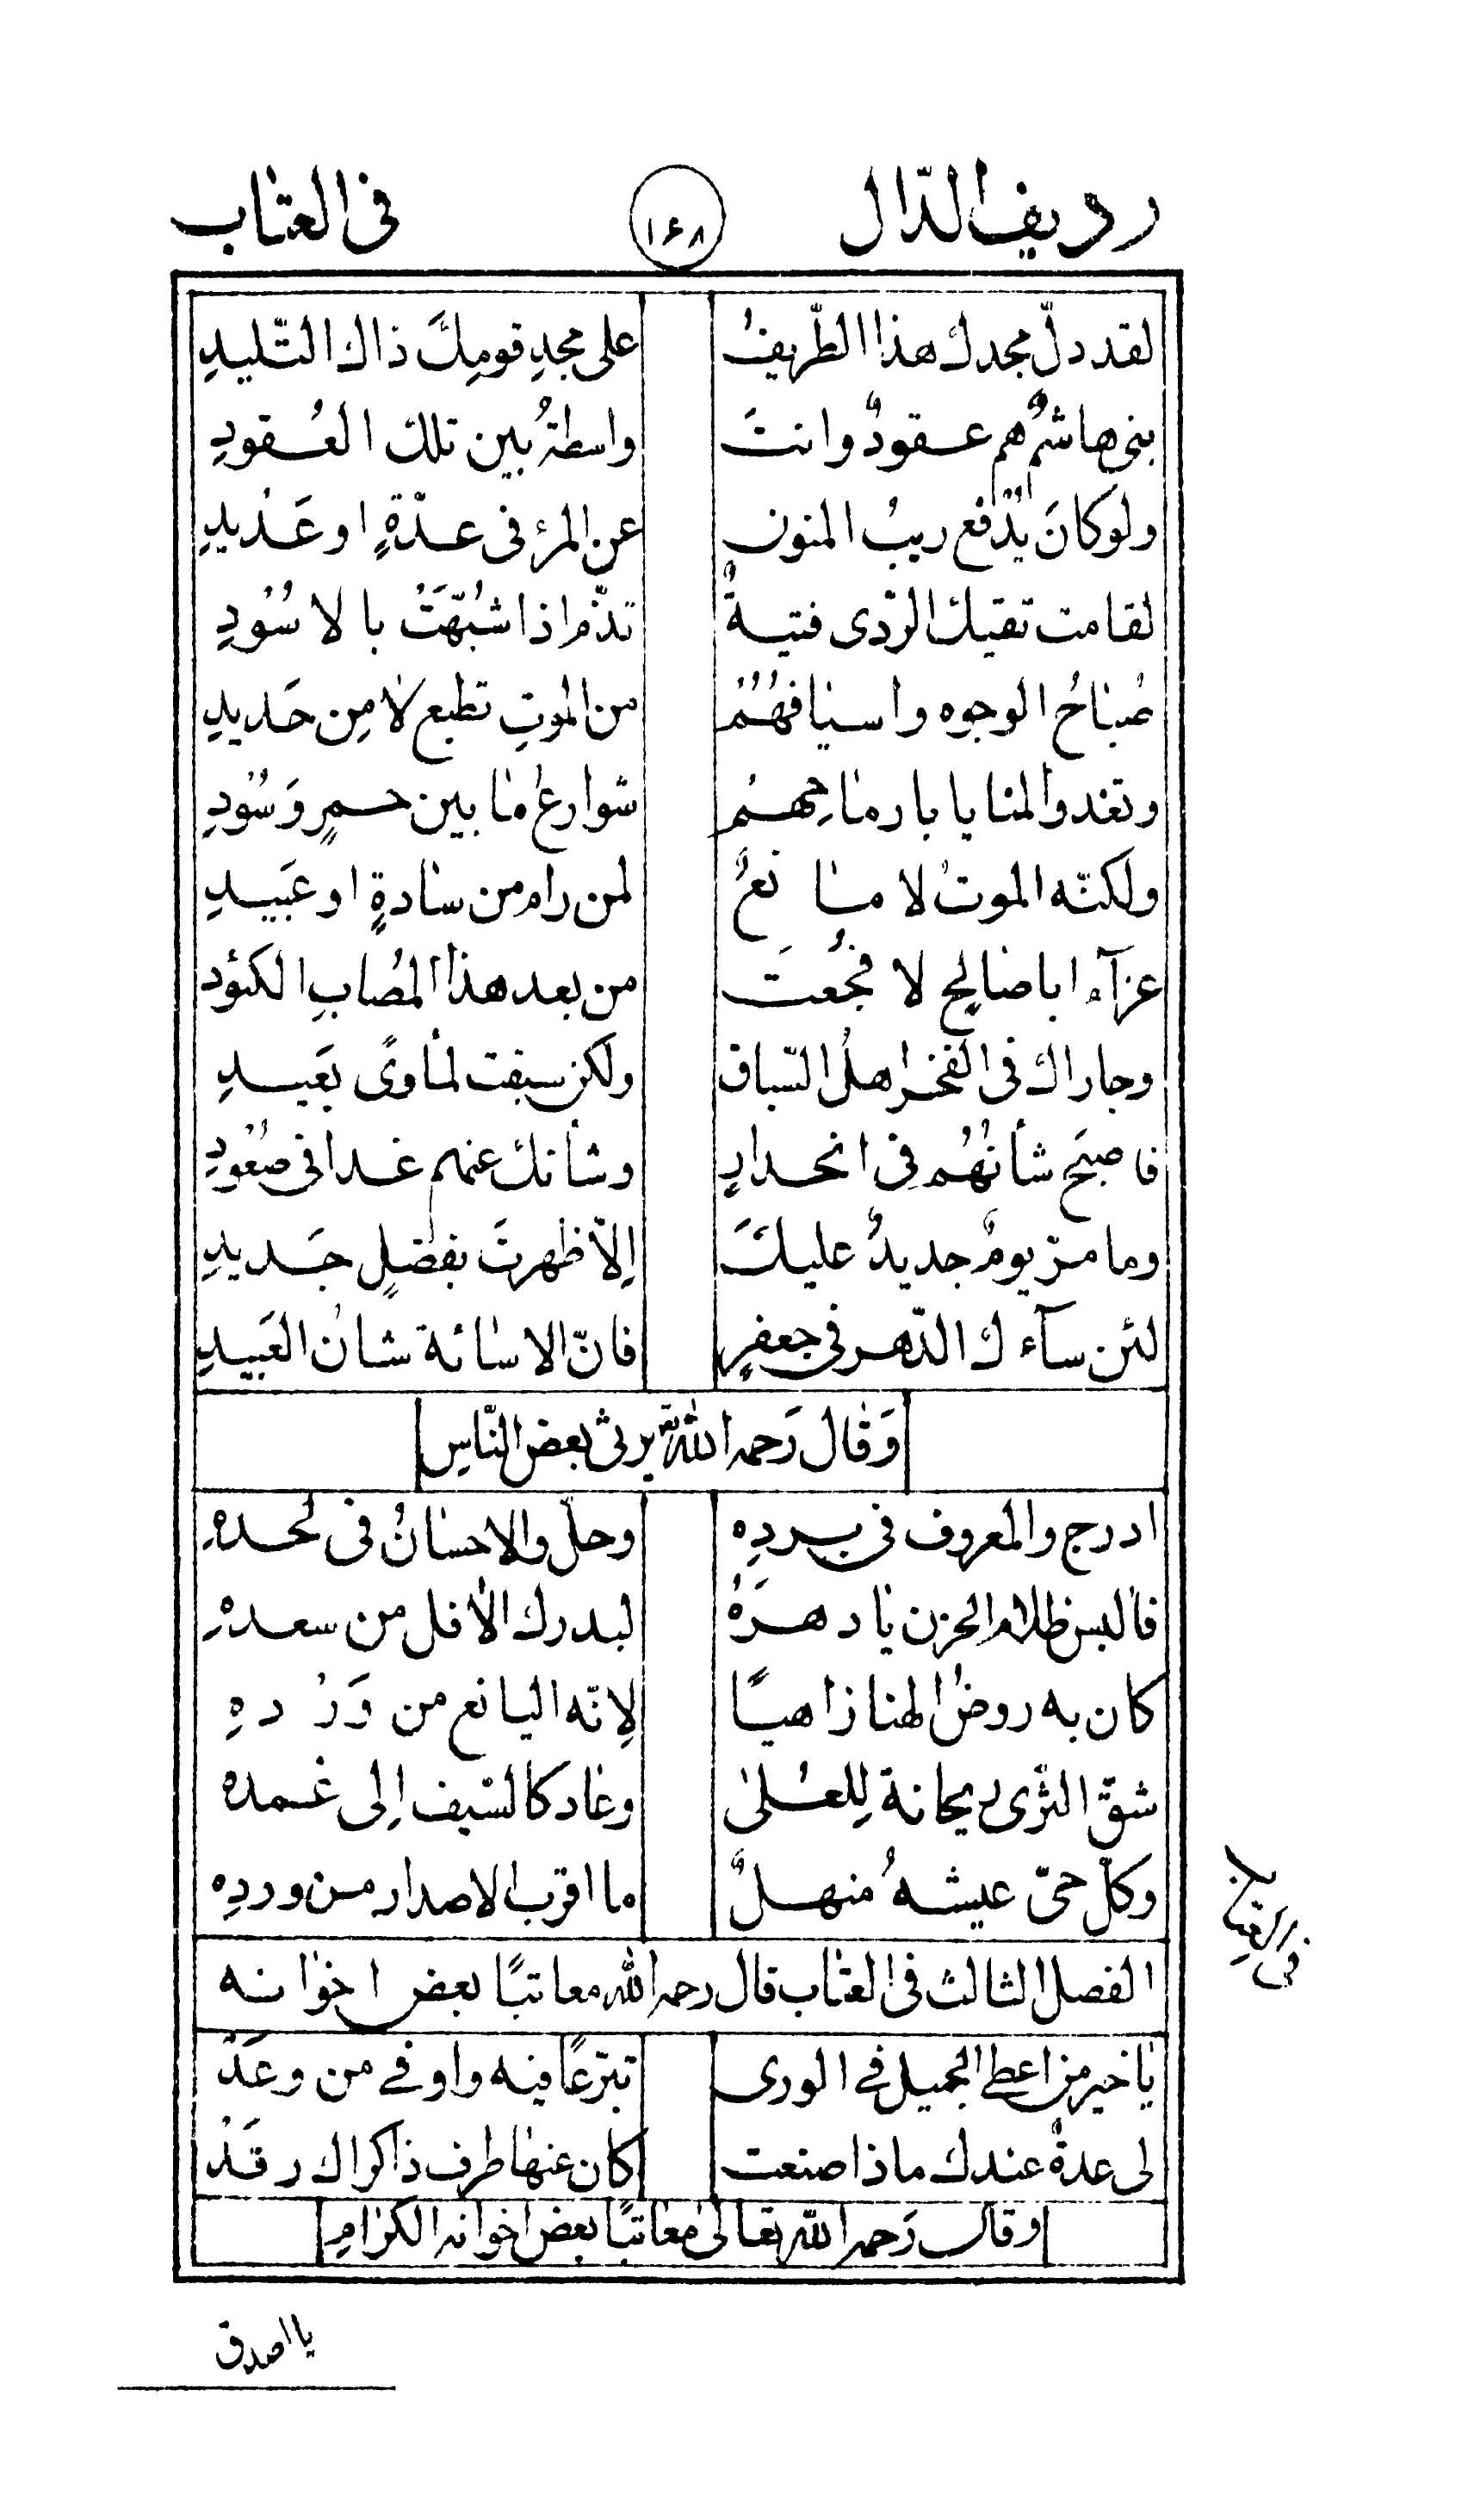 رديف الدّال ١٦٨ فى العتاب
لقد دلّ مجدك هذا الطّريفُ على مجدِ قومِكَ ذاك التّليدِ
بنى هاشمٌ هم عقودٌ وانتَ واسطةُ بين تلك العُقودِ
ولو كانَ يُدفع ريبُ المنون عن المرء فى عدّةٍ او عَديدِ
لقامت تقيك الرّدى فتيةٌ تذمّ اذا شُبّهَتْ بالاسُودِ
صُباحُ الوجوه واسيافهُمُ من الموتِ تطبع لا مِن حَديدِ
وتغدو المنايا بارماحِهِم شوارع ما بين حمرٍ وَسُودِ
ولكنّه الموتُ لا مانعٌ لمن رام من سادةٍ او عَبيدِ
عزآء ابا صالحٍ لا فُجّعتَ من بعد هذا المُصابِ الكئود
وجاراك فى الفخر اهلُ السّباق ولكن سبقت لمأوىً بَعيدِ
فاصبَح شأنُهُم فِى انحدارٍ وشأنك عنهم غدا فى صُعُودِ
وما مرّ يومٌ جديدٌ عليكَ اِلّا ظهرتَ بفضلٍ جَديدِ
لئن سآءك الدّهر فى جعفرٍ فانّ الاسائة شان العَبيدِ
وَقال رَحمه الله تعالى يرثى بعض النّاسِ
ادرج والمعروف فى بردِه وحلّ والاحسانُ فى لحدهِ
فالبس ظلام الحزن يا دهرَهُ لبدرك الافل من سعدهِ
كان به روضُ الهنا زاهيًا لِانّه اليانع من وَرْدهِ
شقّ الثّرى ريحانة لِلعُلى وعاد كالسّيف اِلى غمده
وكلّ حىّ عيشهُ منهلٌ ما اقرب الاصدار من وردِه
فى العتاب
الفصل الثالث فى العتاب قال رحمه الله معاتبًا بعض اخوانه
يا خير من اعطى الجميل فى الورى تبرّعًا فيه واوفى من وعَدْ
لى عدةٌ عندك ماذا صنعت كان عنها طرف ذاكراك رقَدْ
وقال رَحمه الله تعالى معاتبًا بعض اخوانه الكرامِ
يا اصدق